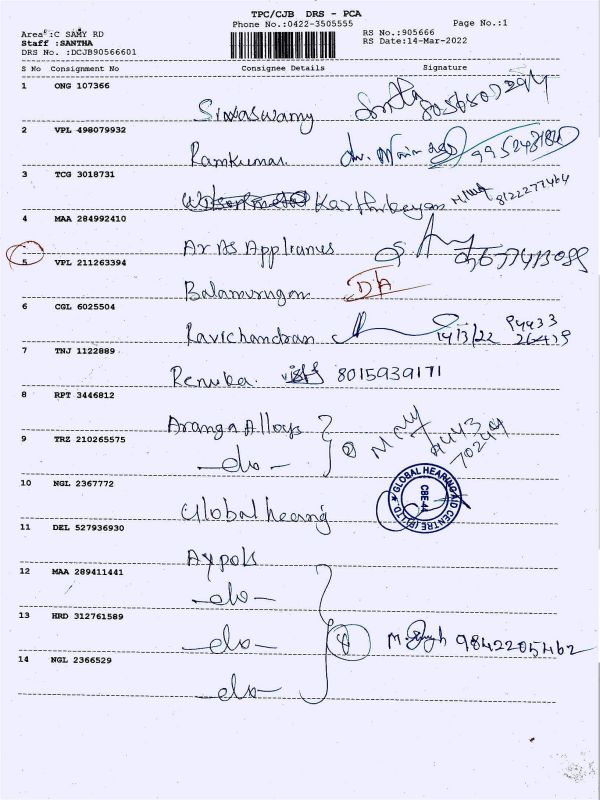 TPC/CJB DRS - PCA
Phone No.:0422-3505555
Page No.:1
Area :C SAMY RD
Staff :SANTHA
DRS No. :DCJB90566601
RS No.:905666
RS Date:14-Mar-2022
S No Consignment No Consignee Details Signature
1 ONG 107366
Sivaswamy
2 VPL 498079932
Ramkumar
3 TCG 3018731
Karthikeyan 8122277464
4 MAA 284992410
Ar As Appliances
5 VPL 211263394
Balamurugan DA
6 CGL 6025504
Ravichandran 14/3/22 94433 26419
7 TNJ 1122889
Renuka. 8015939171
8 RPT 3446812
Aranga Alloys
9 TRZ 210265575
-do- 9443 70249
10 NGL 2367772
Global hearing
GLOBAL HEARING AID CENTRE (P) LTD.
CBE-44
11 DEL 527936930
Aypols
12 MAA 289411441
-do-
13 HRD 312761589
-do- 4 9842205462
14 NGL 2366529
-do-